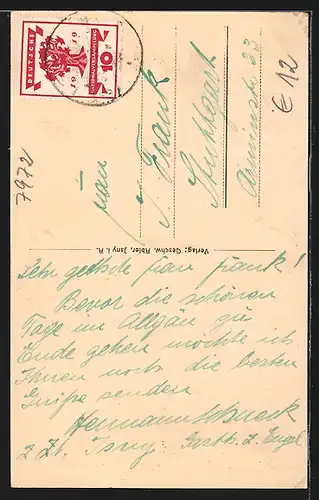 DEUTSCHE
NATIONALVERSAMMLUNG
1919
10
7972
€ 12
Frau
J. Frank
Stuttgart
Arminstr 33
Verlag: Geschw. Abler, Isny i. A.
Sehr geehrte Frau Frank!
Bevor die schönen
Tage im Allgäu zu
Ende gehen möchte ich
Ihnen noch die besten
Grüße senden
Hermann
z. Zt. Isny Gasth. z. Engel